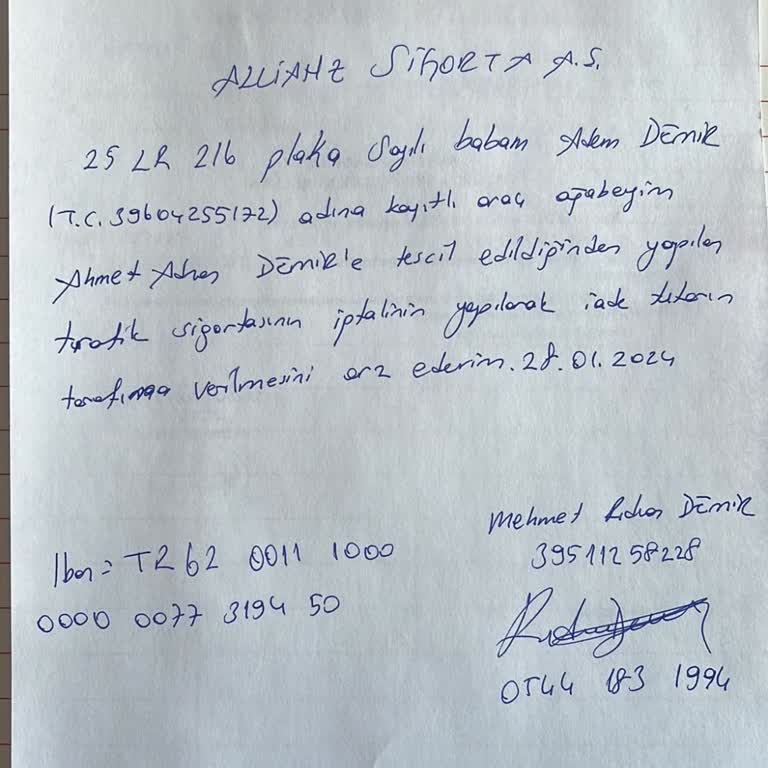 ALLİANZ SİGORTA A.Ş.
25 LR 216 plaka sayılı babam Adem DEMİR
(T.C. 39604255172) adına kayıtlı araç ağabeyim
Ahmet Adnan DEMİR'e tescil edildiğinden yapılan
trafik sigortasının iptalinin yapılarak iade tutarın
tarafıma verilmesini arz ederim. 28.01.2024
Mehmet Rıdvan DEMİR
39511258228
Iban = TR 62 0011 1000
0000 0077 3194 50
0544 183 1994